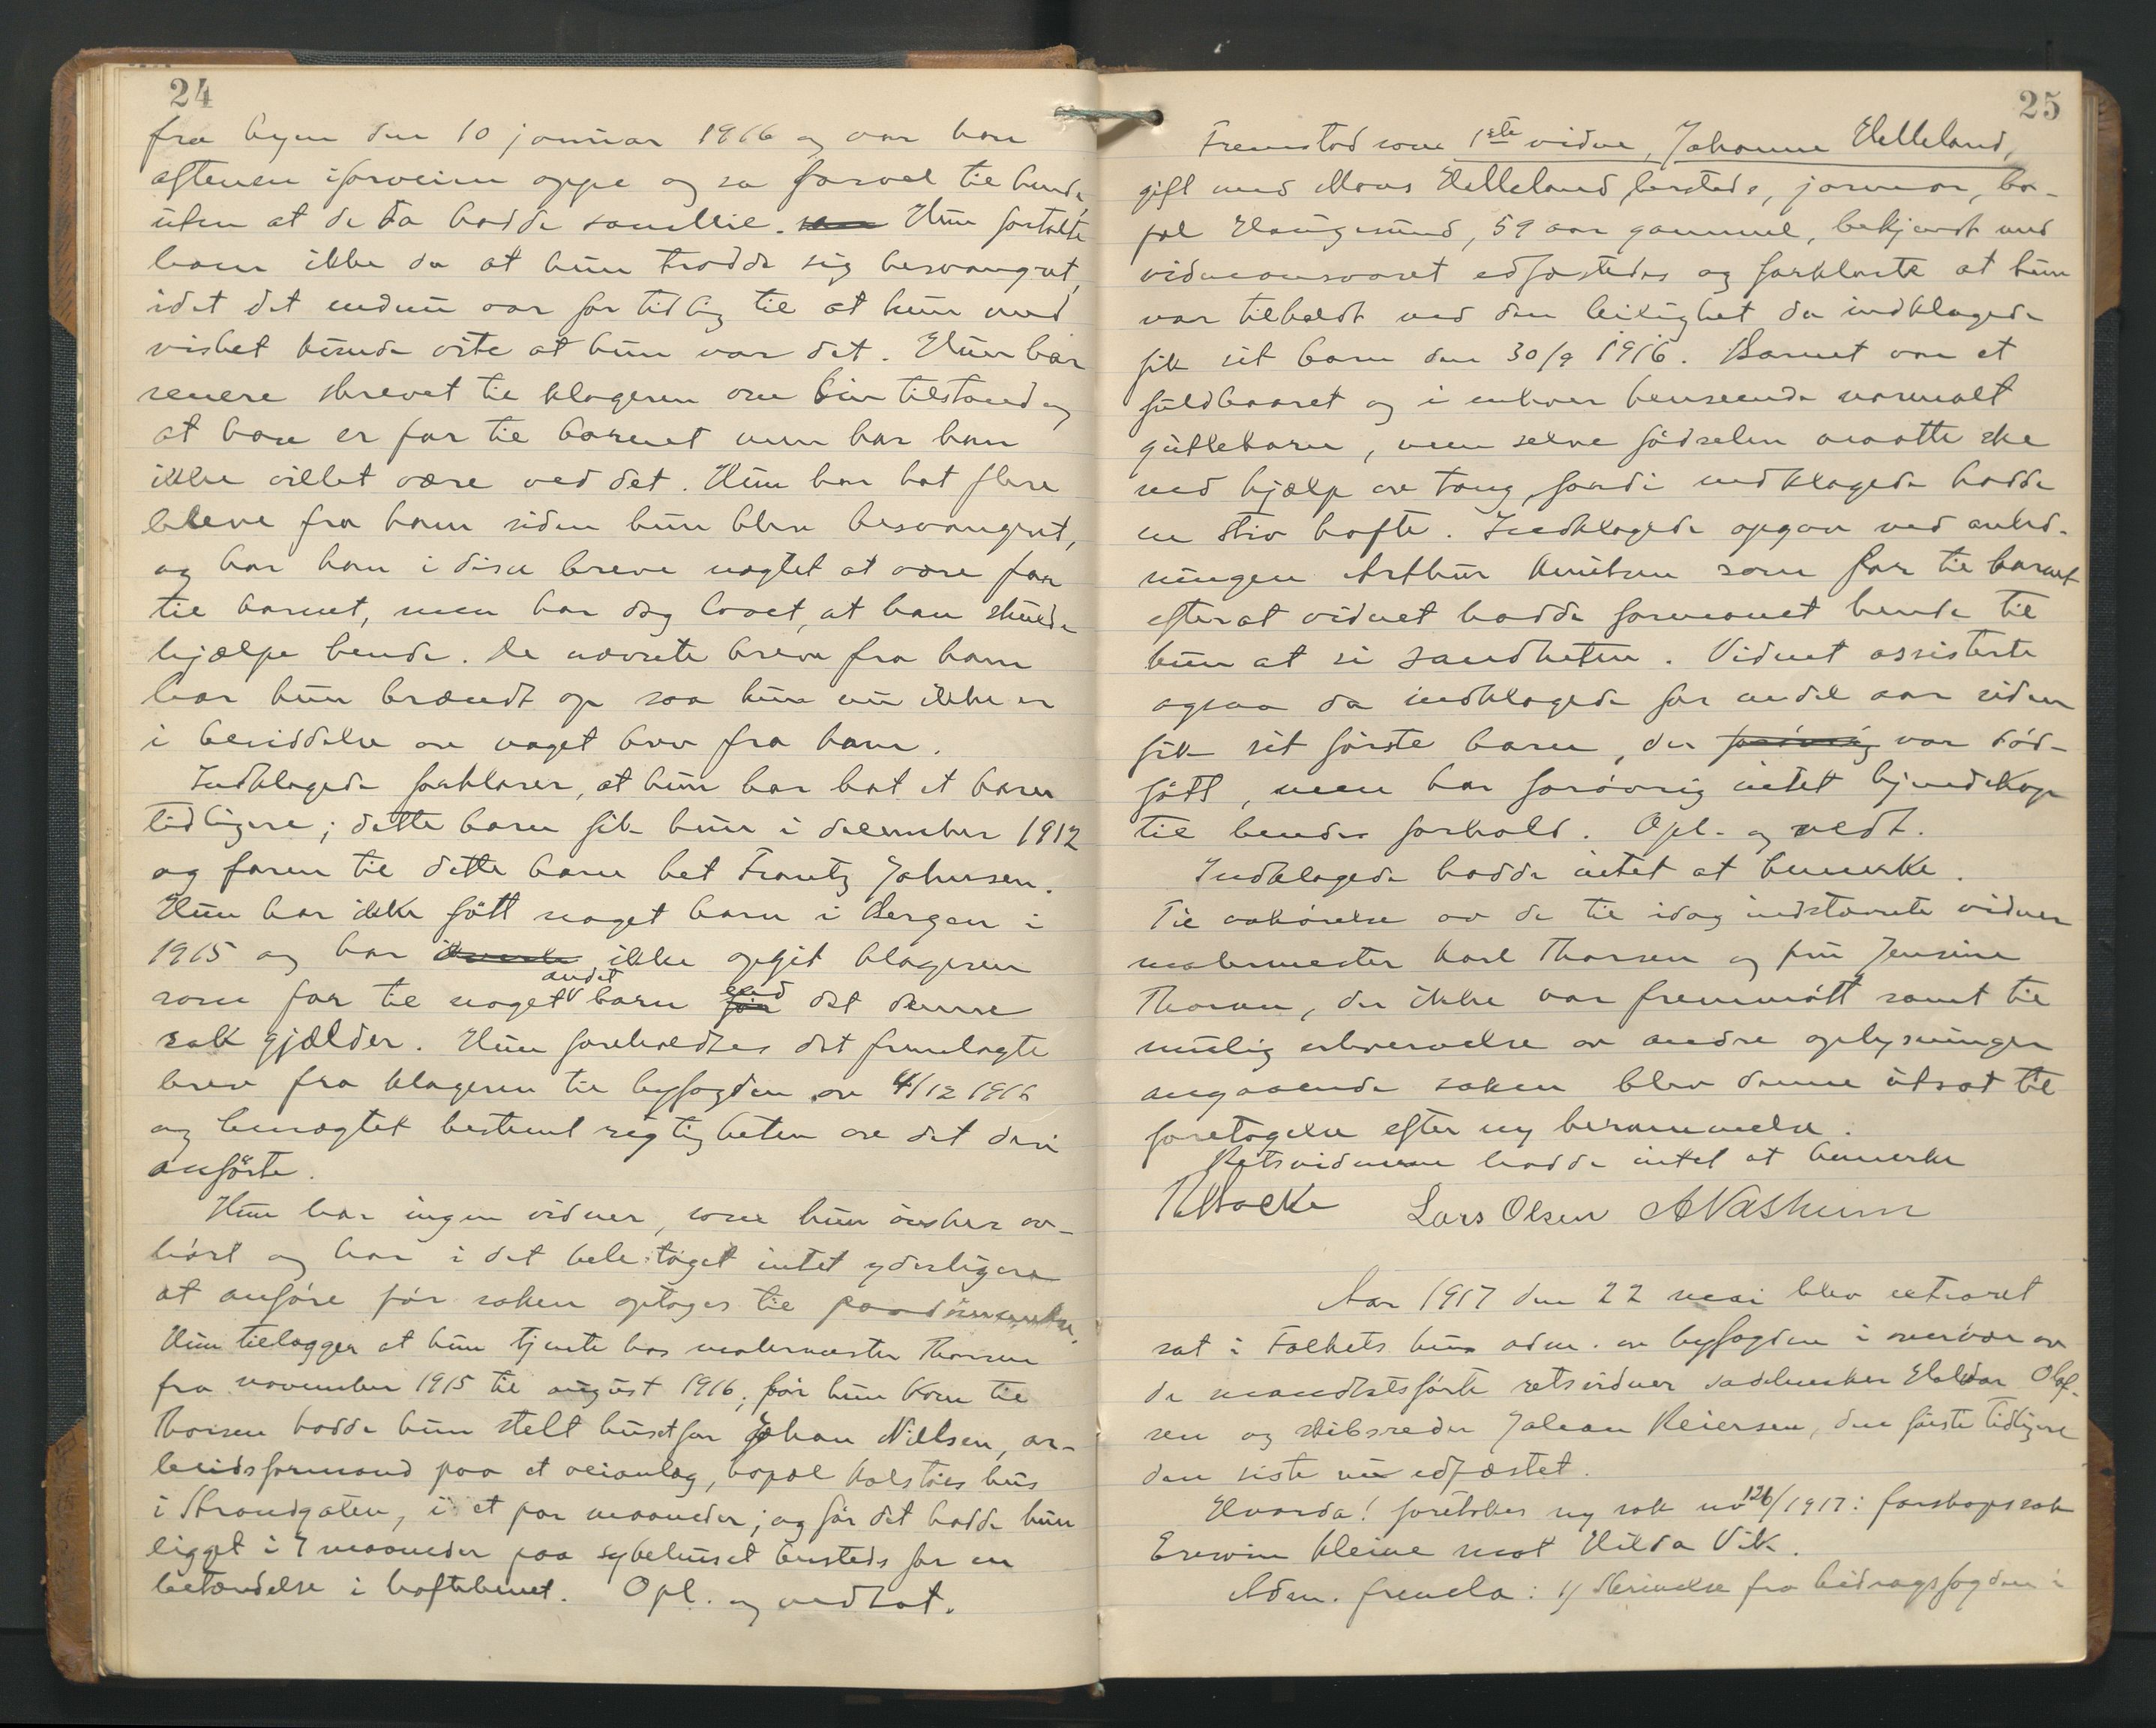 24
fra byen den 10 januar 1916 og var han
aftenen iforveien oppe og sa farvel til hende,
uten at de da hadde samleie. Hun fortalte
ham ikke da at hun trodde sig besvangret,
idet det endnu var for tidlig til at hun med
vishet kunde vite at hun var det. Hun har
senere skrevet til klageren om sin tilstand og
at han er far til barnet men har han
ikke villet være ved det. Hun har hat flere
breve fra ham siden hun blev besvangret,
og har han i disse breve nægtet at være far
til barnet, men har dog lovet, at han skulde
hjælpe hende. De nævnte breve fra ham
har hun brændt op saa hun nu ikke er
i besiddelse av noget brev fra ham.
Indklagede forklarer, at hun har hat et barn
tidligere; dette barn fik hun i december 1912
og faren til dette barn het Frantz Johnsen.
Hun har ikke fått noget barn i Bergen i
1915 og har ikke opgit klageren
som far til noget andet barn end det denne
sak gjælder. Hun foreholdtes det fremlagte
brev fra klageren til byfogden av 4/12 1916
og benegtet bestemt rigtigheten av det deri
anførte.
Hun har ingen vidner, som hun ønsker av-
hørt og har i det hele taget intet yderligere
at anføre før saken optages til paadømmelse.
Hun tilægger at hun tjente hos malermester Thorsen
fra november 1915 til august 1916; før hun kom til
Thorsen hadde hun stelt huset for Johan Nilsen, ar-
beidsformand paa et veianlæg, bopæl Kolstøes hus
i Strandgaten, i et par maaneder; og før det hadde hun
ligget i 7 maaneder paa sykehuset hersteds for en
betændelse i hoftebenet. Opl. og vedtat.
25
Fremstod som 1ste vidne, Johanne Helleland,
gift med Mons Helleland hersteds, jormor, bo-
pæl Haugesund, 59 aar gammel, bekjendt med
vidneansvaret edfæstedes og forklarte at hun
var tilkaldt ved den leilighet da indklagede
fik sit barn den 30/9 1916. Barnet var et
fuldbaaret og i enhver henseende normalt
guttebarn, men selve fødselen maatte ske
ved hjælp av tang, fordi indklagede hadde
en stiv hofte. Indklagede opgav ved anled-
ningen Arthur Knutsen som far til barnet
efterat vidnet hadde formanet hende til
kun at si sandheten. Vidnet assisterte
ogsaa da indklagede for endel aar siden
fik sit første barn, der forøvrig var død-
født, men har forøvrig intet kjendskap
til hendes forhold. Opl. og vedt.
Indklagede hadde intet at bemerke.
Til avhørelse av de til idag indstevnte vidner
malermester Karl Thorsen og fru Jensine
Thorsen, der ikke var fremmøtt samt til
mulig erhvervelse av andre oplysninger
angaaende saken blev denne utsat til
foretagelse efter ny berammelse.
Retsvidnerne hadde intet at bemerke
Lars Olsen
Aar 1917 den 22 mai blev extraret
sat i Folkets hus adm. av byfogden i overvær av
de mandtalsførte retsvidner sadelmaker Haldor Olaf-
sen og skibsreder Johan Reiersen, den første tidligere
den siste nu edfæstet.
Hvorda! foretokes ny sak no 126/1917: farskapssak
Erwin Kleine mot Hilda Vik.
Adm. fremla: 1) Skrivelse fra bidragsfogden i